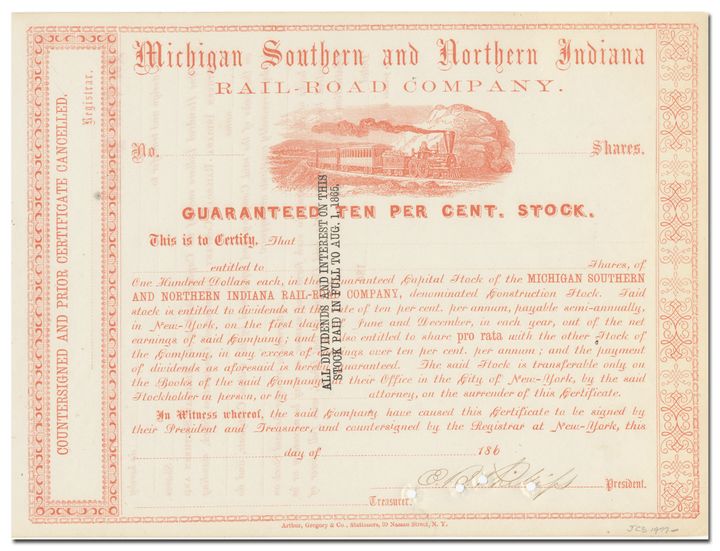 Michigan Southern and Northern Indiana
RAIL-ROAD COMPANY.
No. Shares.
GUARANTEED TEN PER CENT. STOCK.
This is to Certify, That
entitled to Shares, of
One Hundred Dollars each, in the Guaranteed Capital Stock of the MICHIGAN SOUTHERN
AND NORTHERN INDIANA RAIL-ROAD COMPANY, denominated Construction Stock. Said
stock is entitled to dividends at the rate of ten per cent. per annum, payable semi-annually,
in New-York, on the first day of June and December, in each year, out of the net
earnings of said Company; and is also entitled to share pro rata with the other Stock of
the Company, in any excess of earnings over ten per cent. per annum; and the payment
of dividends as aforesaid is hereby guaranteed. The said Stock is transferable only on
the Books of the said Company at their Office in the City of New-York, by the said
Stockholder in person, or by attorney, on the surrender of this Certificate.
In Witness whereof, the said Company have caused this Certificate to be signed by
their President and Treasurer, and countersigned by the Registrar at New-York, this
day of 186
President.
Treasurer.
Arthur, Gregory & Co., Stationers, 39 Nassau Street, N. Y.
COUNTERSIGNED AND PRIOR CERTIFICATE CANCELLED.
Registrar.
ALL DIVIDENDS AND INTEREST ON THIS
STOCK PAID IN FULL TO AUG. 1, 1865.